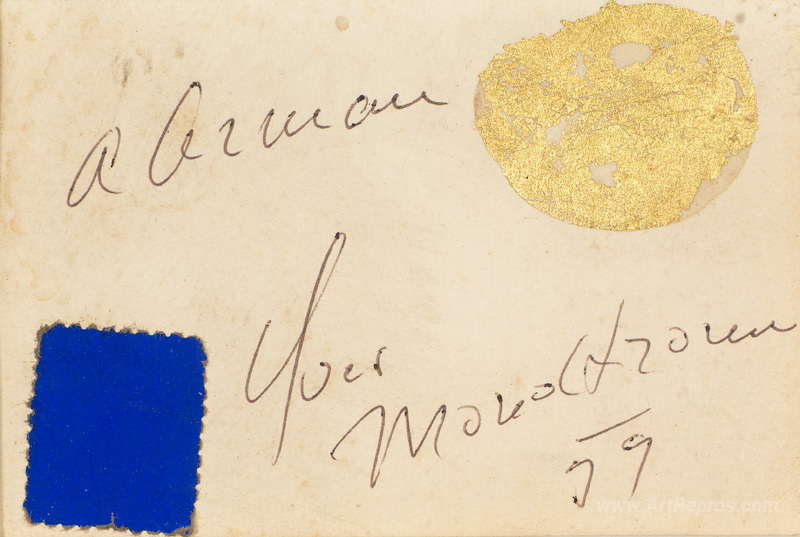 A Arman
Yves
Monochrome
59
www.ArtRepros.com